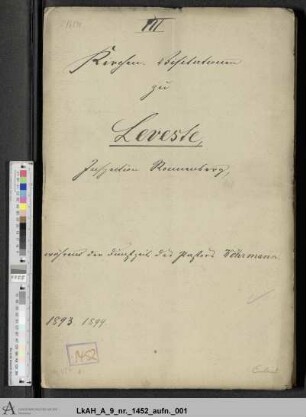 III
Kirchen-Visitationen
zu
Leveste,
Inspection Ronnenberg,
während der Dienstzeit des Pastors Böhrmann
1893 1899
1452
LkAH_A_9_nr._1452_aufn._001